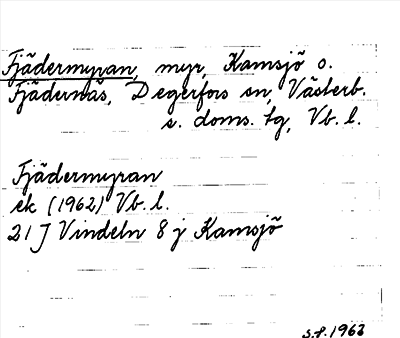 Fjädermyran, myr, Kamsjö o.
Fjädernäs, Degerfors sn, Västerb.
s. doms. tg, Vb. l.
Fjädermyran
ek (1962) Vb. l.
21 J Vindeln 8 j Kamsjö
S.P. 1963